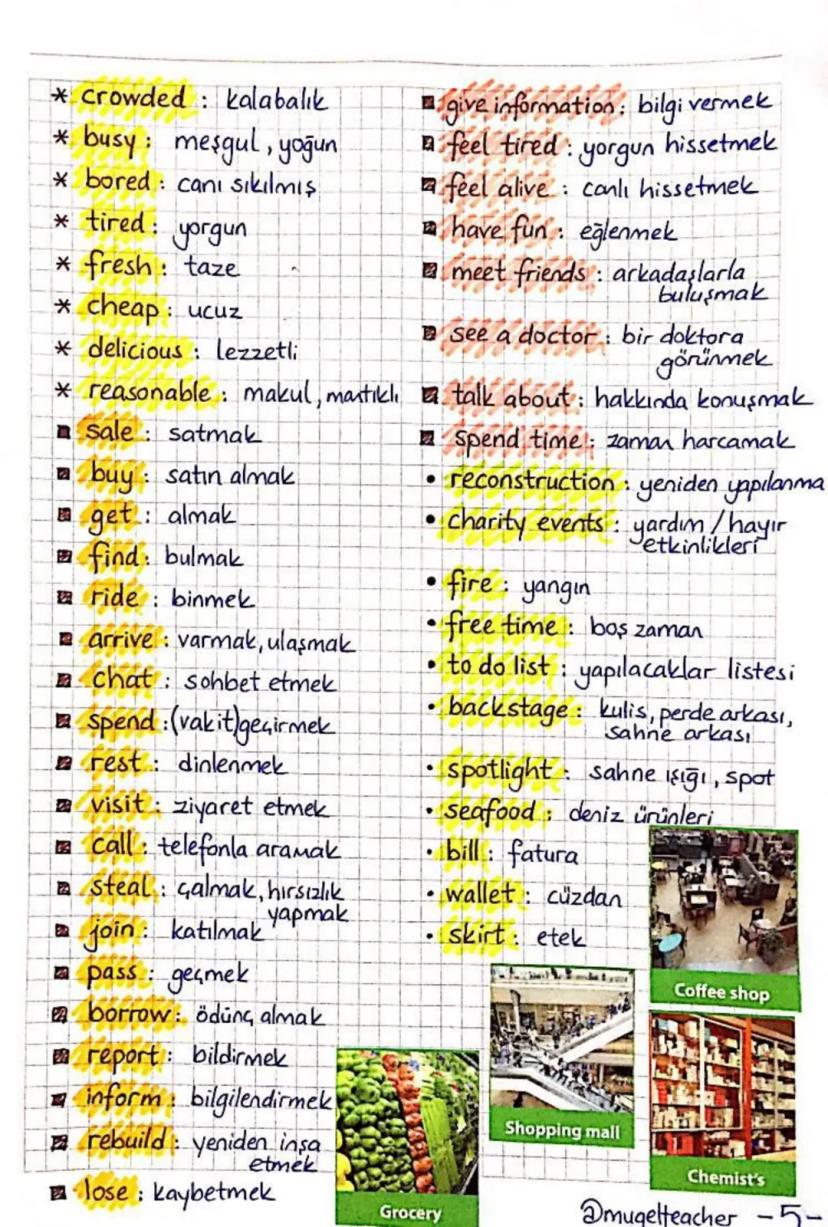 * crowded : kalabalık
* busy : meşgul, yoğun
* bored : canı sıkılmış
* tired : yorgun
* fresh : taze
* cheap : ucuz
* delicious : lezzetli
* reasonable : makul, mantıklı
sale : satmak
buy : satın almak
get : almak
find : bulmak
ride : binmek
arrive : varmak, ulaşmak
chat : sohbet etmek
spend : (vakit) geçirmek
rest : dinlenmek
visit : ziyaret etmek
call : telefonla aramak
steal : çalmak, hırsızlık
yapmak
join : katılmak
pass : geçmek
borrow : ödünç almak
report : bildirmek
inform : bilgilendirmek
rebuild : yeniden inşa
etmek
lose : kaybetmek
give information : bilgi vermek
feel tired : yorgun hissetmek
feel alive : canlı hissetmek
have fun : eğlenmek
meet friends : arkadaşlarla
buluşmak
see a doctor : bir doktora
görünmek
talk about : hakkında konuşmak
spend time : zaman harcamak
• reconstruction : yeniden yapılanma
• charity events : yardım / hayır
etkinlikleri
• fire : yangın
• free time : boş zaman
• to do list : yapılacaklar listesi
• backstage : kulis, perde arkası,
sahne arkası
• spotlight : sahne ışığı, spot
• seafood : deniz ürünleri
• bill : fatura
• wallet : cüzdan
• skirt : etek
Coffee shop
Shopping mall
Chemist's
Grocery
@mugelteacher -5-